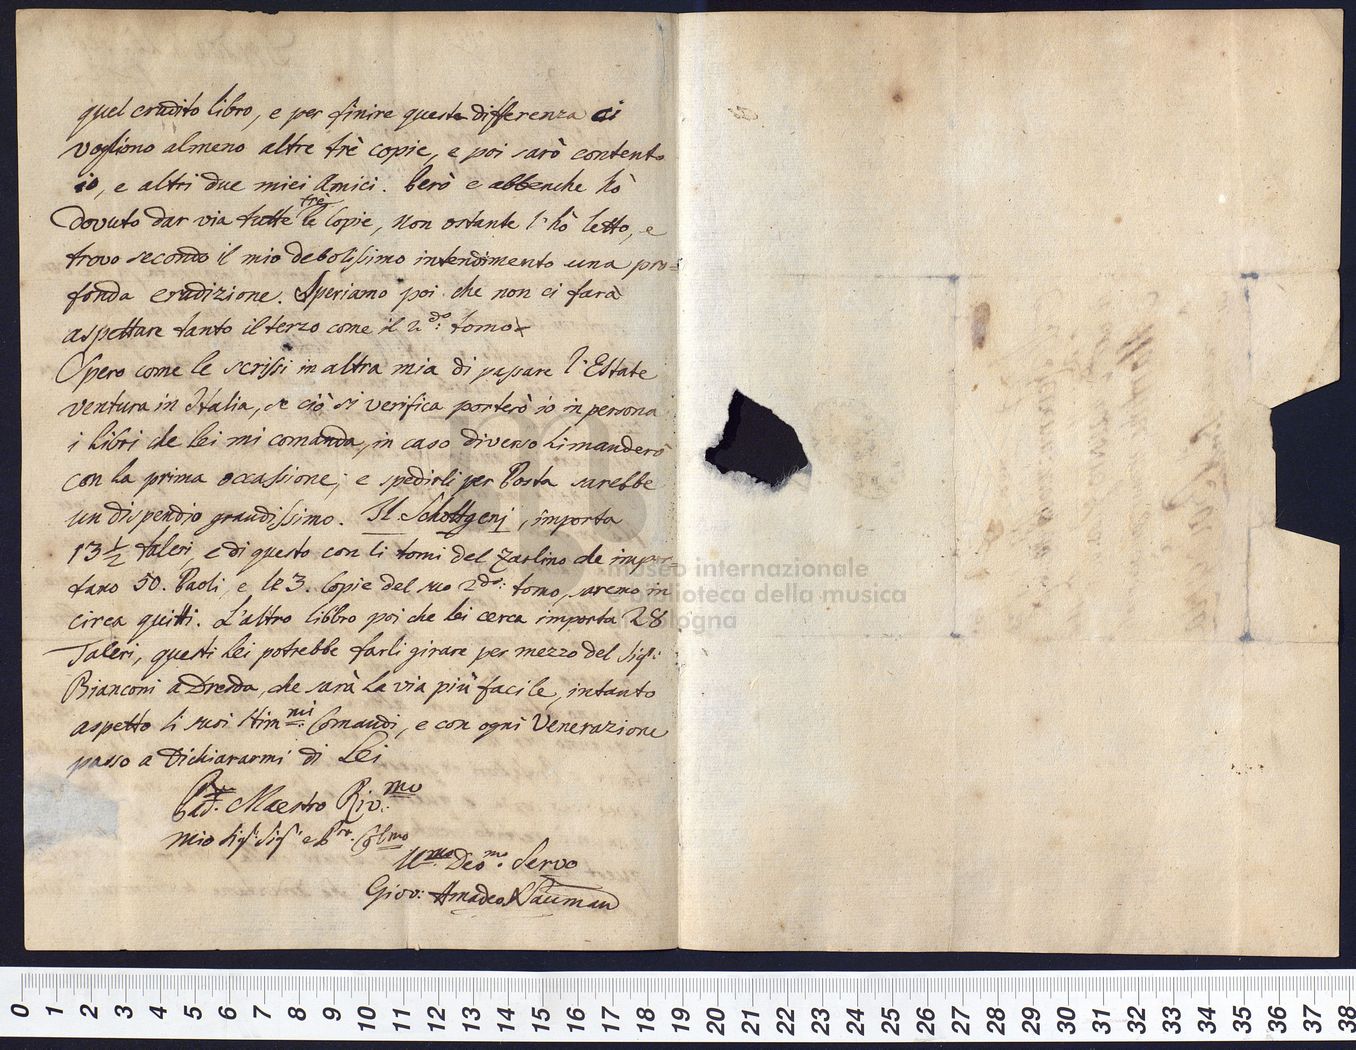 quel erudito libro, e per finire questa differenza ci
vogliono almeno altre trè copie, e poi sarò contento
io, e altri due miei Amici. Però e abbenche hò
dovuto dar via tutte le trè Copie, non ostante l'hò letto, e
trovo secondo il mio debolissimo intendimento una pro=
fonda erudizione. Speriamo poi che non ci farà
aspettare tanto il terzo come il 2.do tomo
Spero come le scrissi in altra mia di passare l'Estate
ventura in Italia, se ciò si verifica porterò io in persona
i libri che lei mi comanda, in caso diverso li manderò
con la prima occassione, e spedirli per Posta sarebbe
un dispendio grandissimo. Il Schottgenj, importa
13 1/2 taleri, e di questo con li tomi del Zarlino che impor-
tano 50. Paoli, e le 3. Copie del suo 2do: tomo, saremo in
circa quitti. L'altro libbro poi che lei cerca importa 28
Taleri, questi lei potrebbe farli girare per mezzo del Sigr:
Bianconi a Dresda, che sarà la via più facile, intanto
aspetto li suoi stimmi Comandi, e con ogni Venerazione
passo a dichiararmi di Lei
Pad. Maestro Riv.mo
mio Sigr: Sigr: e Pro. Colmo
Umo Deo.mo Servo
Giov: Amadeo Nauman
museo internazionale
e biblioteca della musica
di bologna
0 1 2 3 4 5 6 7 8 9 10 11 12 13 14 15 16 17 18 19 20 21 22 23 24 25 26 27 28 29 30 31 32 33 34 35 36 37 38